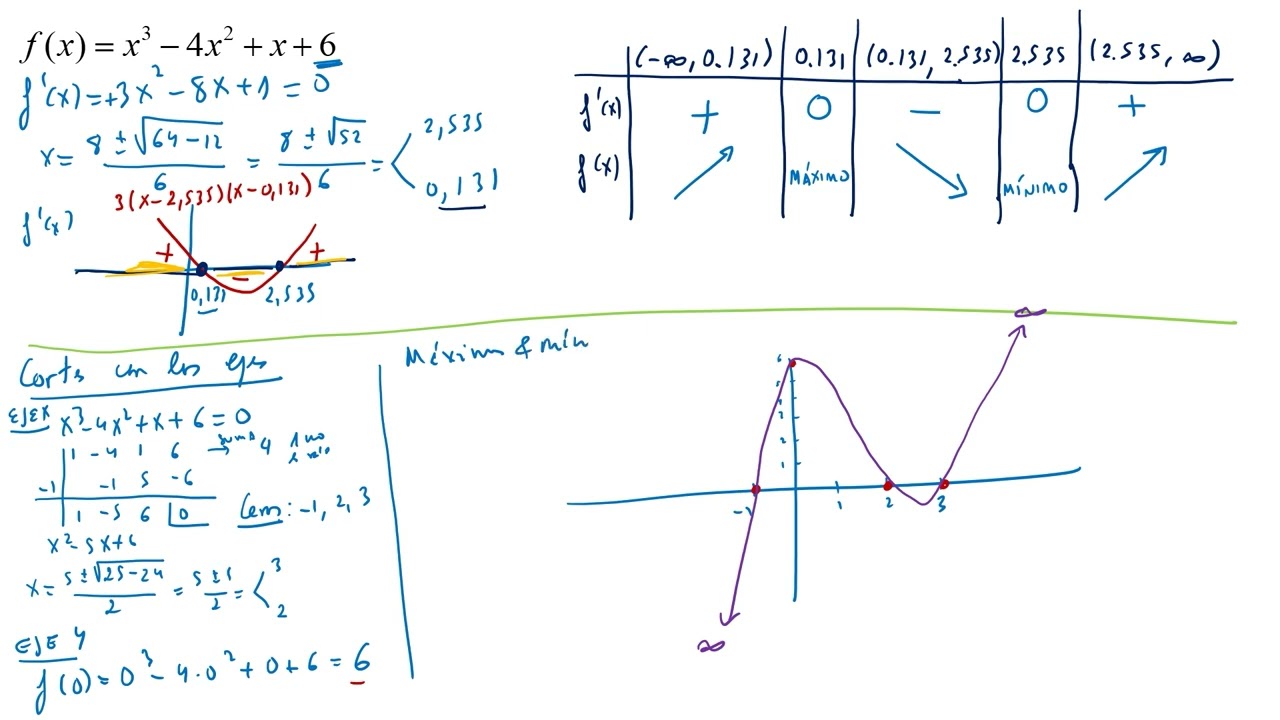 f(x) = x³ − 4x² + x + 6
f'(x) = +3x² − 8x + 1 = 0
x = 8 ± √64 − 12 / 6 = 8 ± √52 / 6 = < 2,535
0,131
3(x − 2,535)(x − 0,131)
f'(x)
+ − +
0,131 2,535
(−∞, 0.131) 0.131 (0.131, 2.535) 2.535 (2.535, ∞)
f'(x) + 0 − 0 +
f(x) MÁXIMO MÍNIMO
Corte con los ejes
EJE X x³ − 4x² + x + 6 = 0
1 −4 1 6 → suma 4 1 no
−1 −1 5 −6
1 −5 6 0
Cero: −1, 2, 3
x² − 5x + 6
x = 5 ± √25 − 24 / 2 = 5 ± 1 / 2 = < 3
2
EJE Y
f(0) = 0³ − 4·0² + 0 + 6 = 6
Máximo & mín
6
5
4
3
2
1
−1 1 2 3
∞
∞